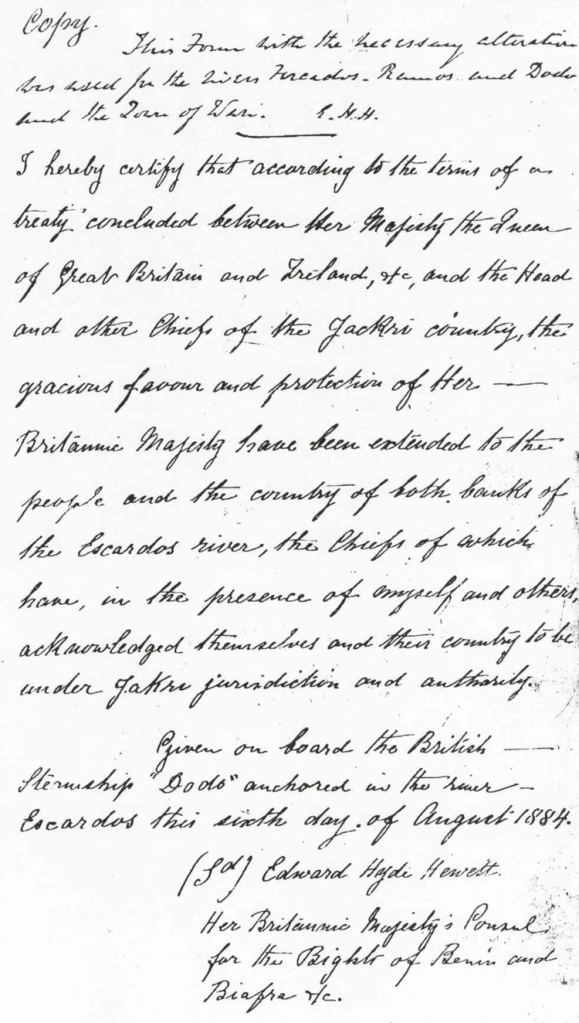 Copy.
This Form with the necessary alteration
was used for the rivers Forcados - Ramos and Dodo
and the Town of Wari. E.H.H.
I hereby certify that according to the terms of a
treaty concluded between Her Majesty the Queen
of Great Britain and Ireland, &c, and the Head
and other Chiefs of the Jackri country, the
gracious favour and protection of Her —
Britannic Majesty have been extended to the
people and the country of both banks of
the Escardos river, the Chiefs of which
have, in the presence of myself and others,
acknowledged themselves and their country to be
under Jakri jurisdiction and authority.
Given on board the British —
Sternship "Dodo" anchored in the river —
Escardos this sixth day of August 1884.
(Sd) Edward Hyde Hewett.
Her Britannic Majesty's Consul
for the Bights of Benin and
Biafra &c.